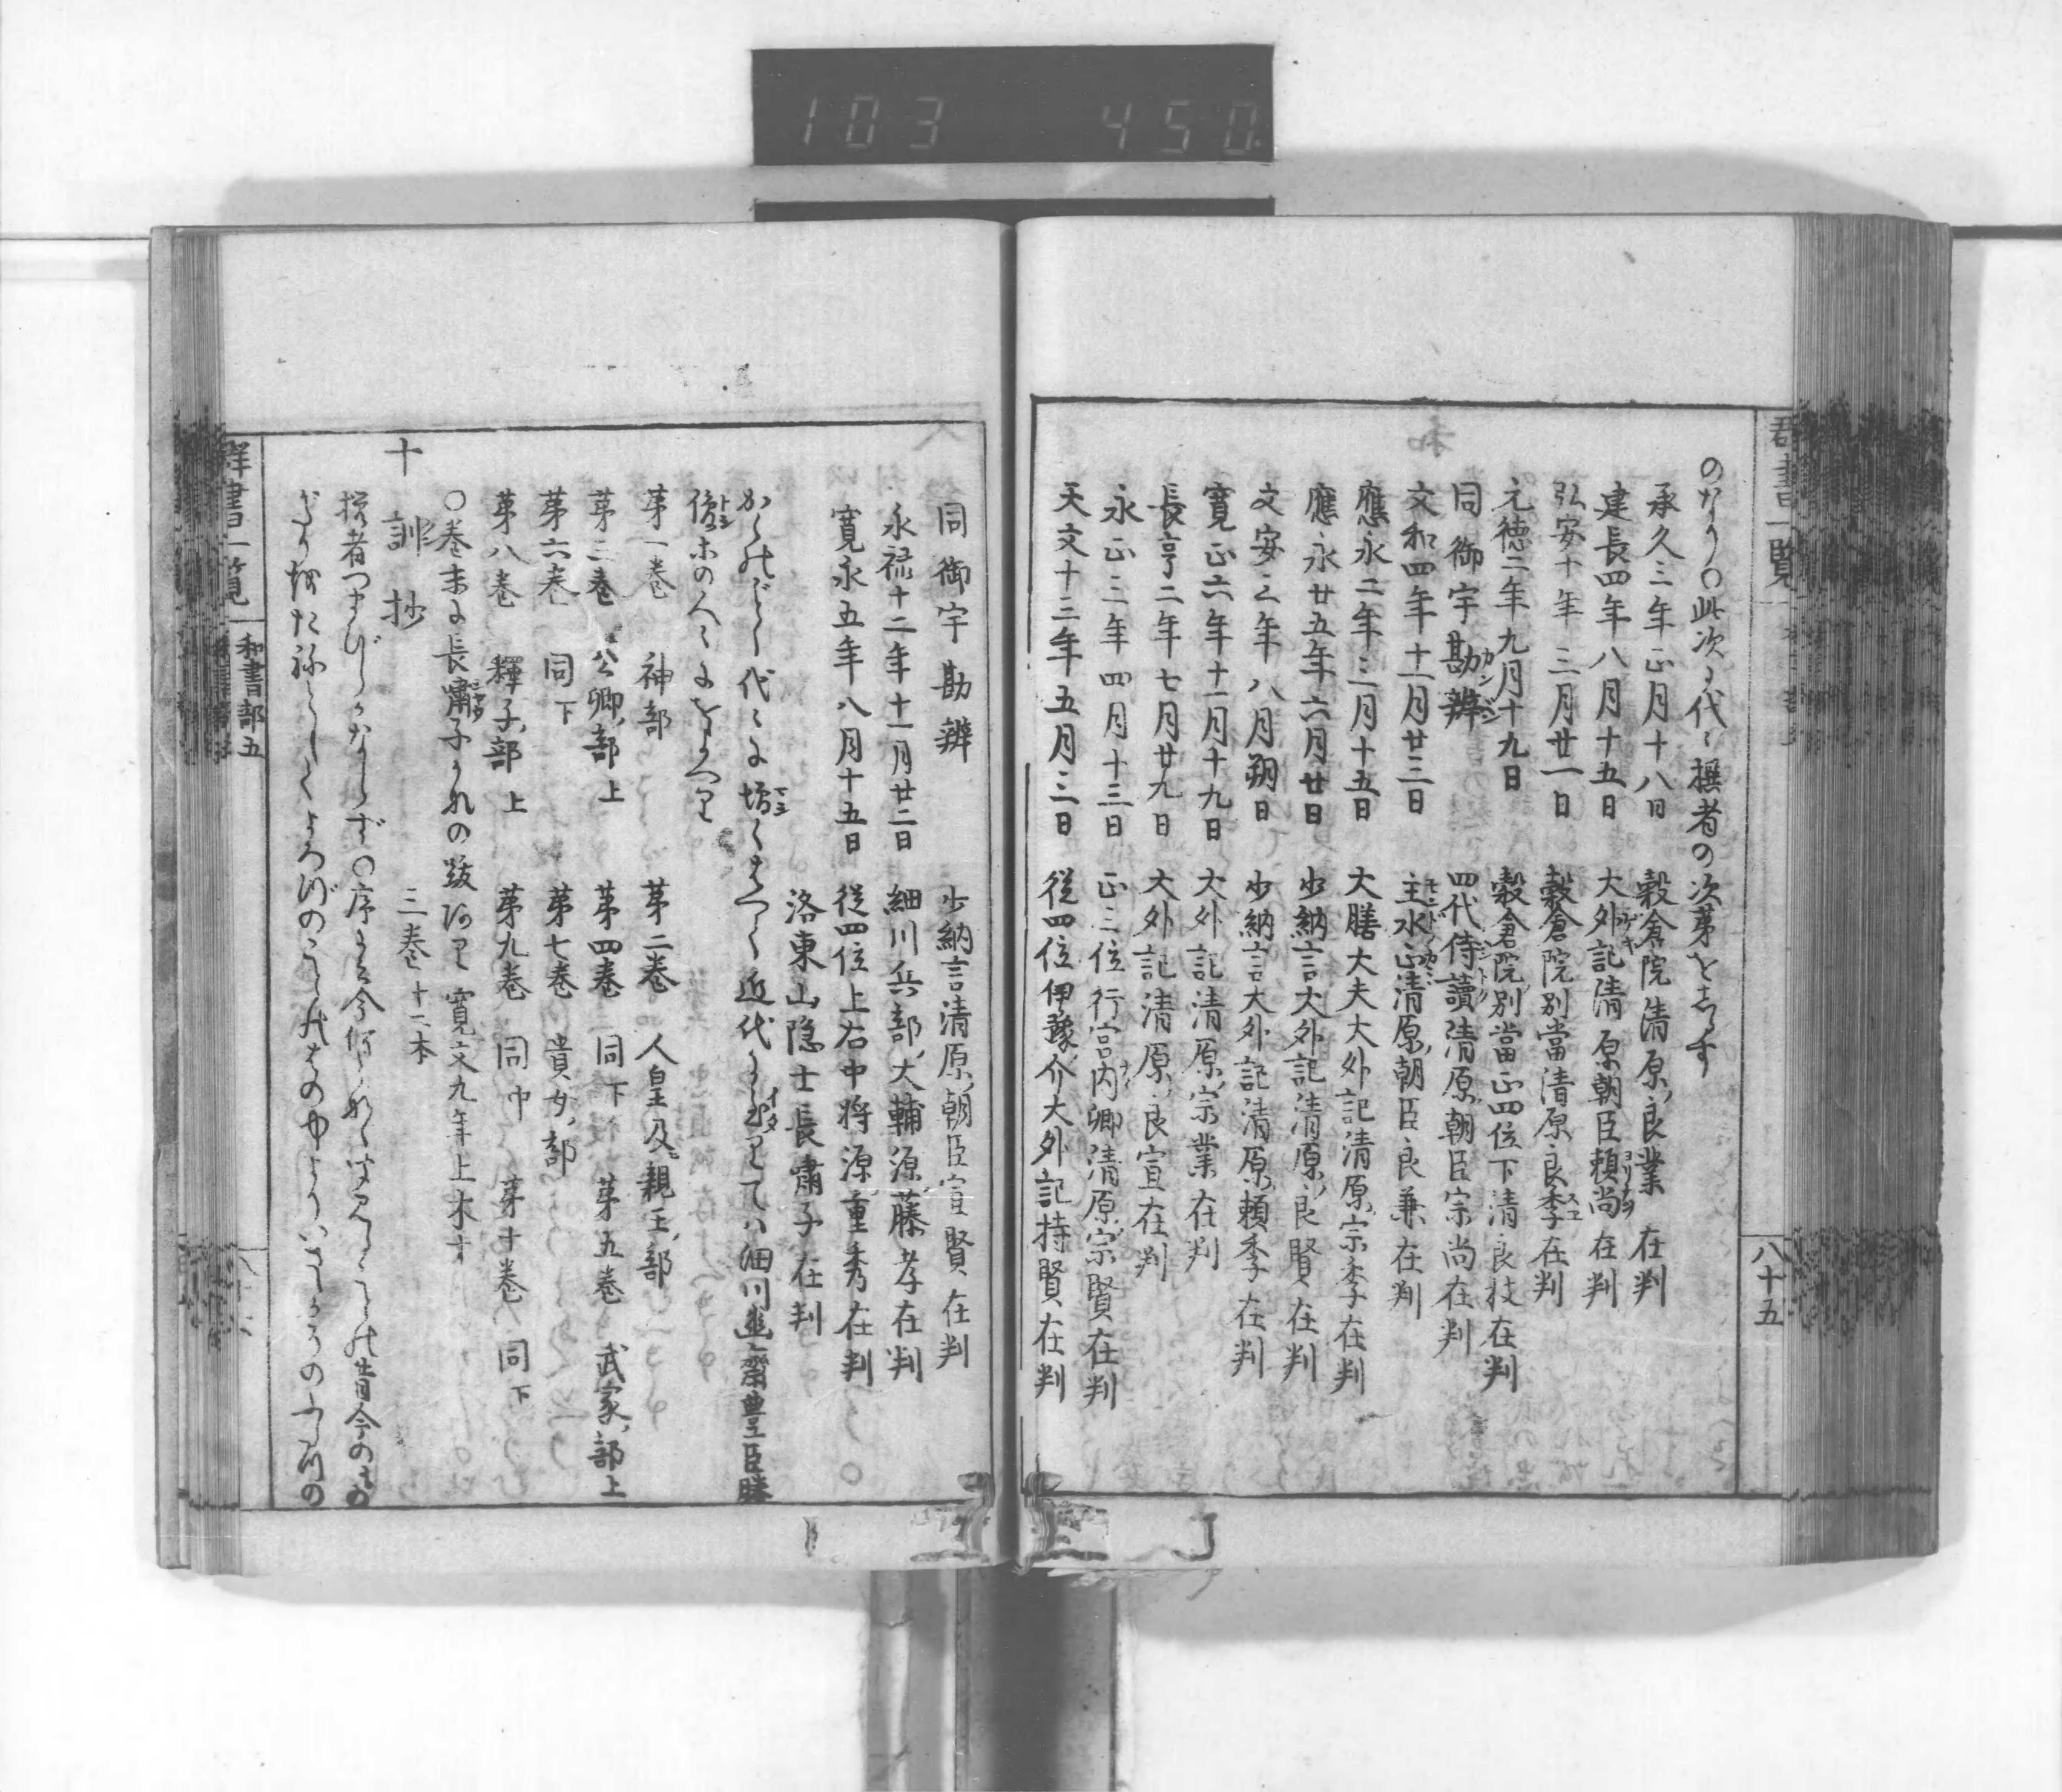 103 450
群書一覧
八十五
のなり○此次に代〻撰者の次第をしるす
承久三年正月十八日 穀倉院清原良業 在判
建長四年八月十五日 大外記清原朝臣頼尚 在判
弘安十年三月廿一日 穀倉院別當清原良季 在判
元徳二年九月十九日 穀倉院別當正四位下清良枝在判
同御宇勘辨 四代侍讀清原朝臣宗尚在判
文和四年十一月廿三日 主水正清原朝臣良兼 在判
應永二年三月十五日 大膳大夫大外記清原宗季在判
應永廿五年六月廿日 少納言大外記清原良賢在判
文安三年八月朔日 少納言大外記清原頼季在判
寛正六年十一月十九日 大外記清原宗業在判
長亨二年七月廿九日 大外記清原良宣在判
永正三年四月十三日 正三位行宮内卿清原宗賢在判
天文十三年五月三日 從四位伊豫介大外記持賢在判
同御宇勘辨 少納言清原朝臣宣賢在判
永禄十二年十一月廿二日 細川兵部大輔源藤孝在判
寛永五年八月十五日 從四位上右中将源重秀在判
洛東山隐士長嘯子在判
かくのごとく代〻に増くはへて近代にいたりては細川幽齋豊臣勝
俊等の人〻にをよへり
第一巻 神部 第二巻 人皇及親王部
第三巻 公卿部上 第四巻 同下 第五巻 武家部上
第六巻 同下 第七巻 貴女部
第八巻 釋子部上 第九巻 同中 第十巻 同下
○巻末に長嘯子これの跋あり 寛文九年上木す
十訓抄 三巻十二本
撰者つまびらかならず○序に云今何となく聞見るところの昔今の
群書一覧
和書部五